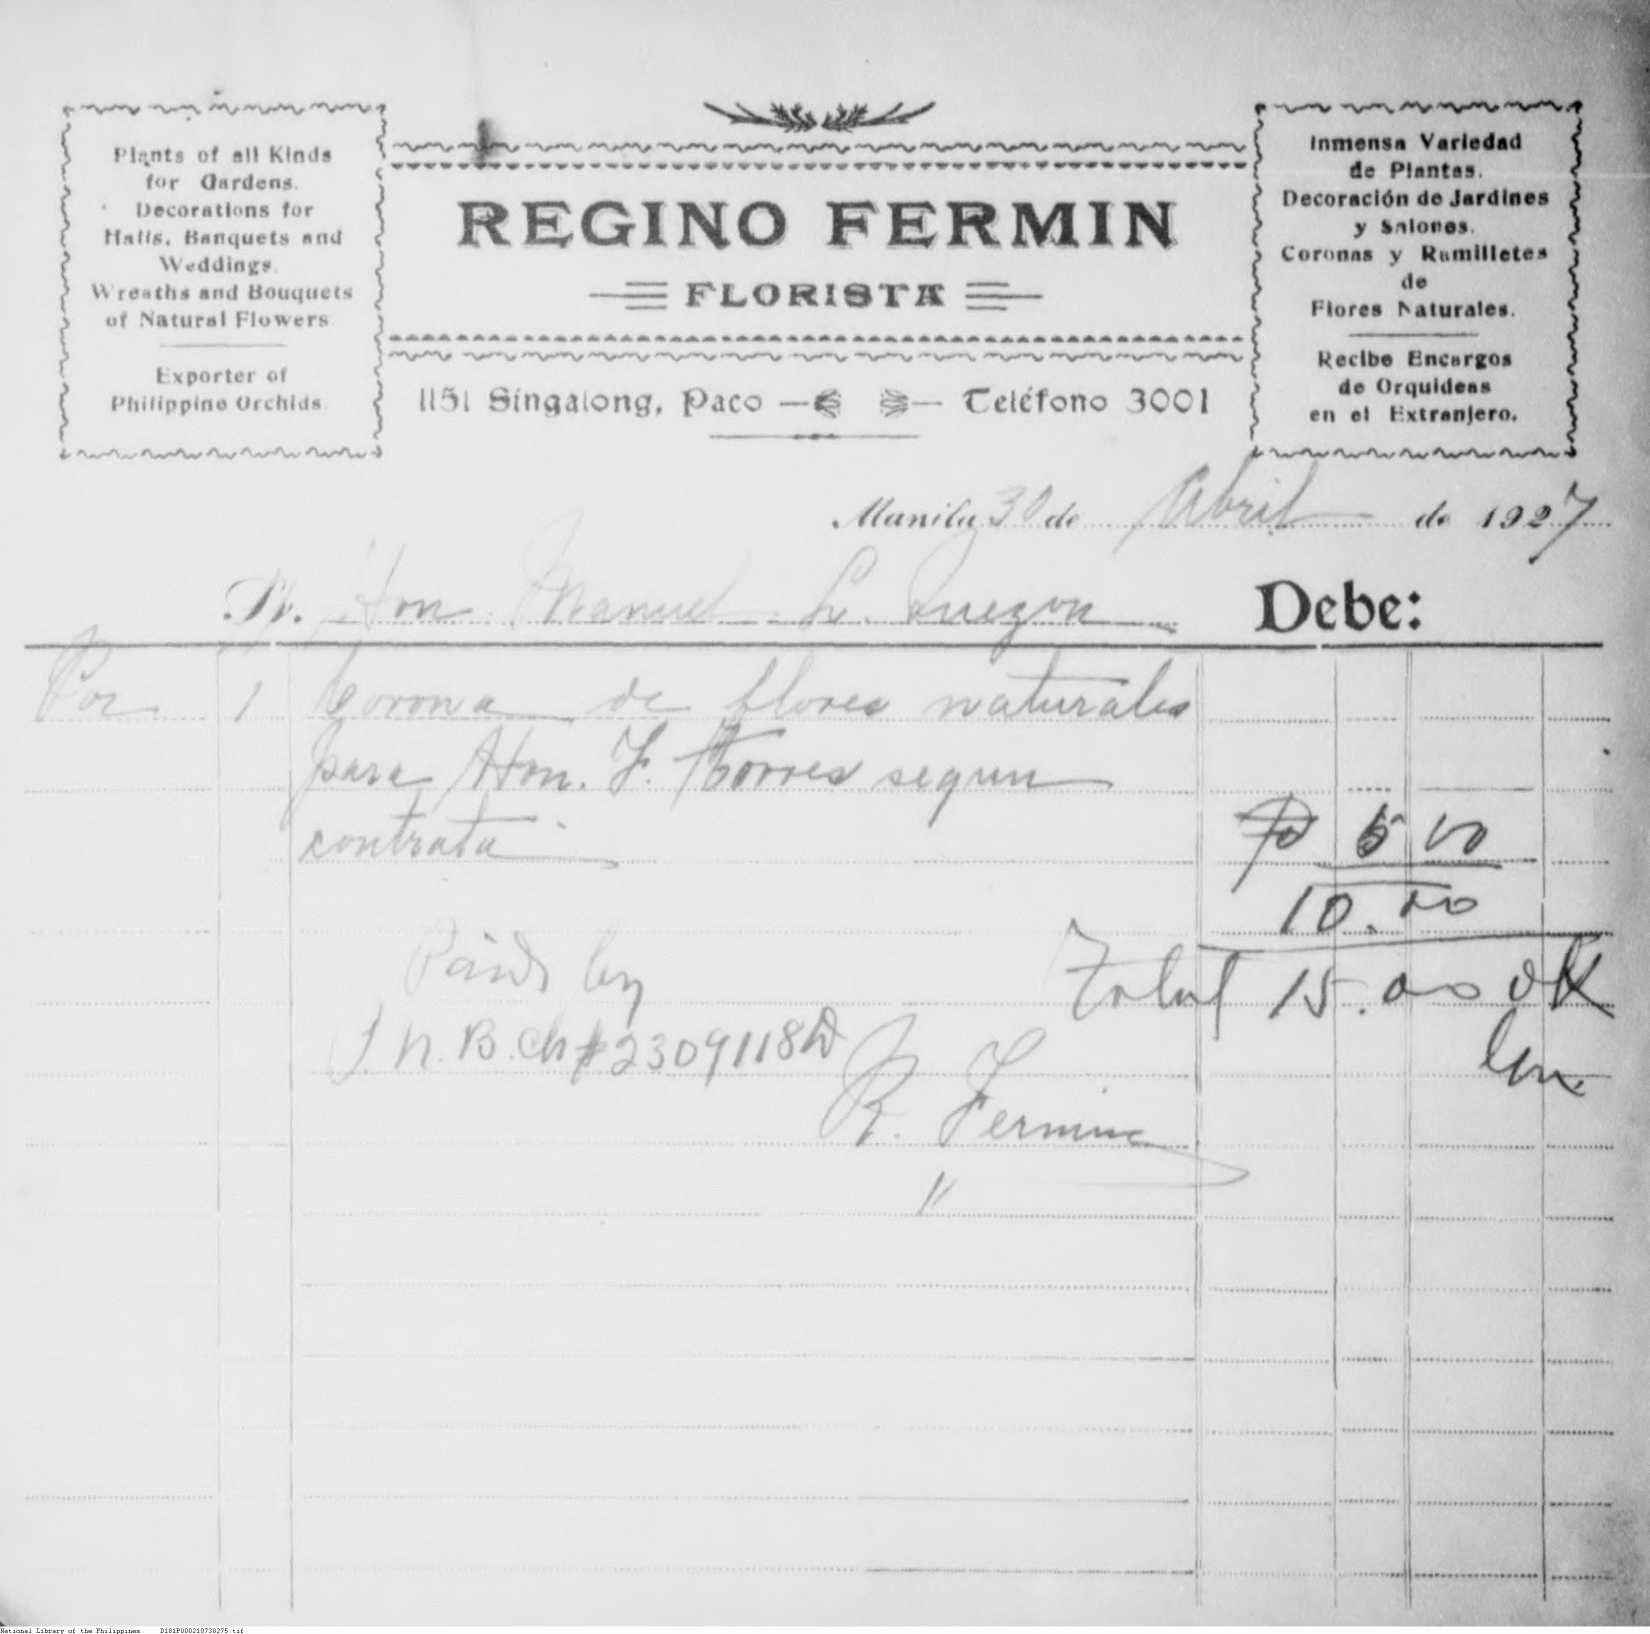 Plants of all Kinds
for Gardens.
Decorations for
Halls, Banquets and
Weddings.
Wreaths and Bouquets
of Natural Flowers
Exporter of
Philippine Orchids
REGINO FERMIN
FLORISTA
1151 Singalong, Paco
Teléfono 3001
Inmensa Variedad
de Plantas.
Decoración de Jardines
y Salones.
Coronas y Ramilletes
de
Flores Naturales.
Recibe Encargos
de Orquideas
en el Extranjero.
Manila 30 de Abril de 1927
Sr. Hon. Manuel L. Quezon Debe:
Por 1 Corona de flores naturales
para Hon. F. Torres segun
contrata ₱ 5 00
10.00
Total 15.00 OK
Paid by
P.N.B. Ch #2309118D
R. Fermin
National Library of the Philippines D181P000210730275.tif